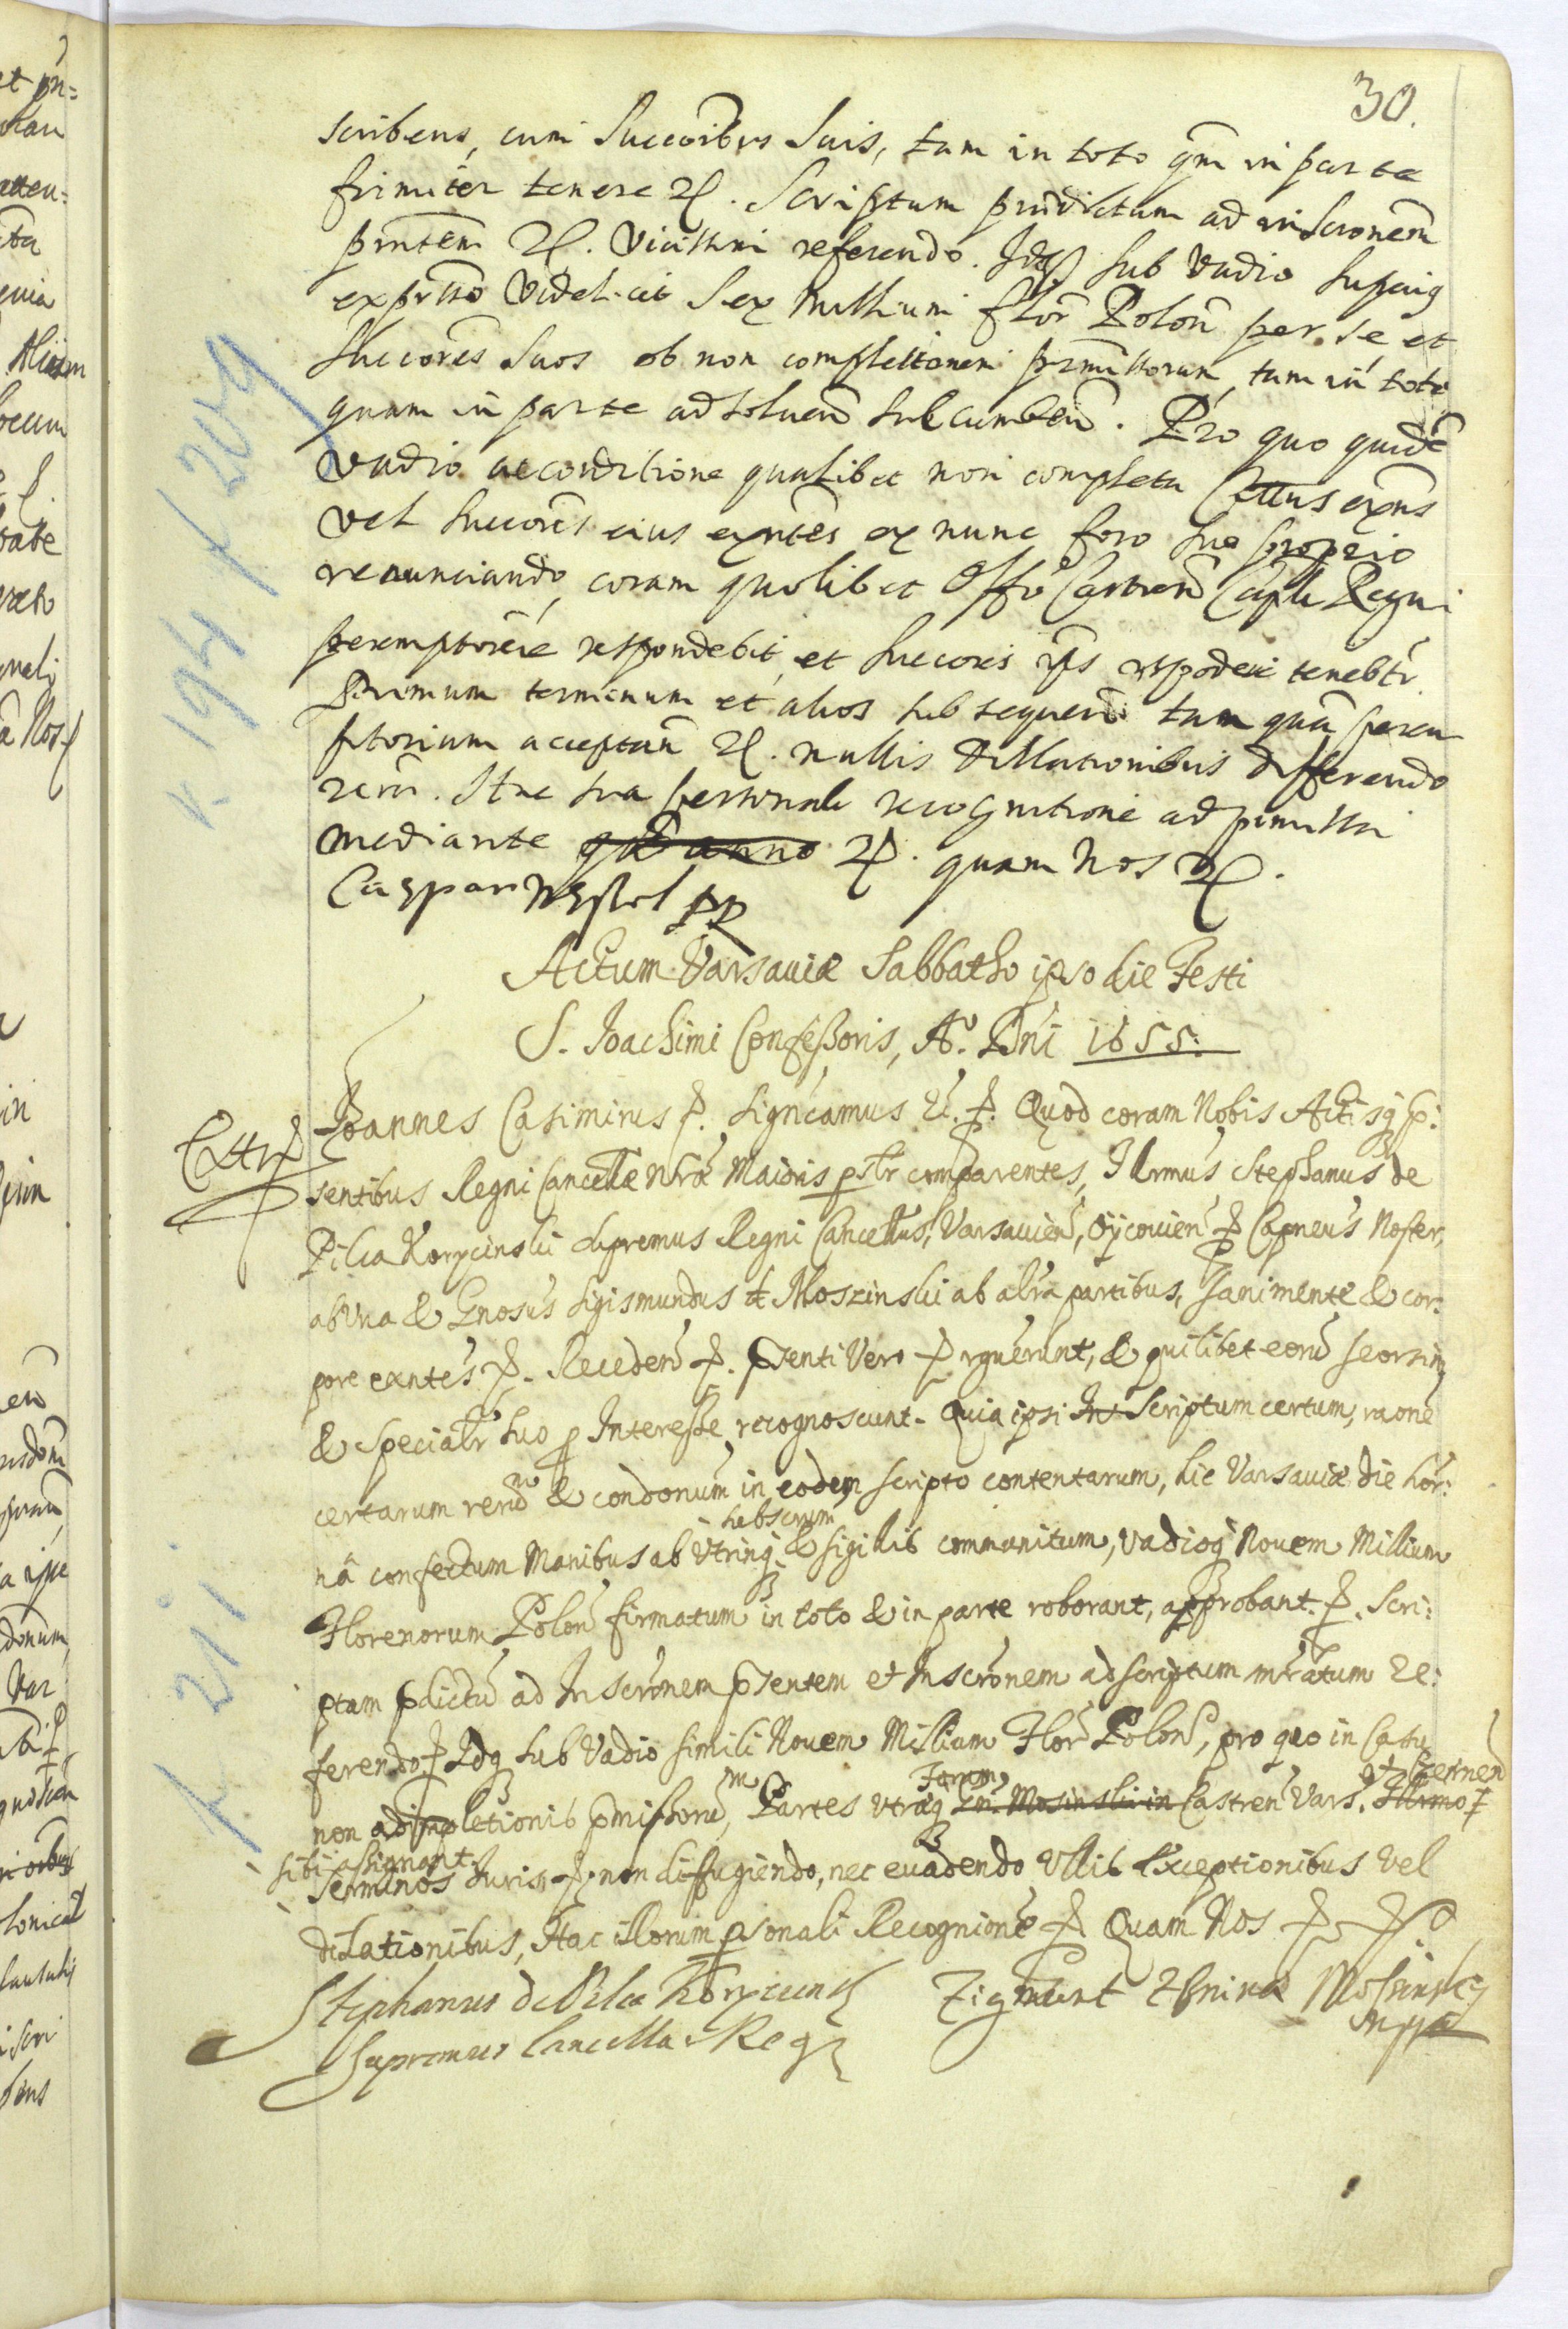 30.
scribens, cum Succoribus suis, tam in toto qm in parte
firmiter tenere etc. Scriptum prædictum ad inscronem
pntem etc. vicissim referendo. Idq sub vadio superius
expresso videlicet Sex millium flor Polon per se et
succores suos ob non completionem præmissorum, tam in toto
quam in parte ad solvend succumben. Pro quo quidē
vadio ac conditione qualibet non completa Cittus exns
vel succores eius exntes ex nunc foro suo proprio
renunciando, coram quolibet Offo Castren Capli Regni
peremptorie respondebit, et succores ipsi respodere tenebtr
Primum terminum et alios subsequen tam quā perem
ptorium acceptan etc. nullis dillationibus differendo
rem. Hac sua personali recognitione ad pmissa
mediante etc. quam Nos etc.
Caspar
Actum Varsaviæ Sabbatho ipso die Festi
S. Joachimi Confessoris, Aº. Dni 1655.
Joannes Casimirus etc. Significamus etc. Quod coram Nobis Actisq p:
sentibus Regni Cancellæ Nræ Maioris psltr comparentes, Illrmus Stephanus de
Pilca Korycinski Supremus Regni Cancellrus, Varsavien, Oycovien etc Capneus Noster,
ab Una & Gnosus Sigismundus de Moszinski ab altra partibus, sani mente & cor:
pore exntes etc. Receden etc. psenti Vero etc rgnuerunt, & quilibet eorū seorsim
& specialr suo p Interesse recognoscunt. Quia ipsi Scriptum certum, raone
certarum rerū & condonum in eodem scripto contentarum, hic Varsaviæ die hor:
subscrum
nâ confectum Manibus ab utrinq & sigillis communitum, vadioq Novem Millium
Florenorum Polon firmatum in toto & in parte roborant, approbant etc. Scri:
ptum pdictū ad Inscronem psentem et Inscronem ad scriptum mratum Re:
ferendo etc Idq sub Vadio simili Novem Millium Flor Polon, pro quo in Casu
non adimpletionis pmissorū, Partes utræq Forum Castren Vars.
sibi assignant
Terminos Juris etc. non diffugiendo, nec evadendo Ullis Exceptionibus vel
dilationibus, Hac illorum psonali Recognione etc Quam Nos etc
Stephanus de Pilca Koryciensk
Supremus Cancellar Reg
Zigmunt Moszinsky
mppa
Extr
K 194 / 209
K 211